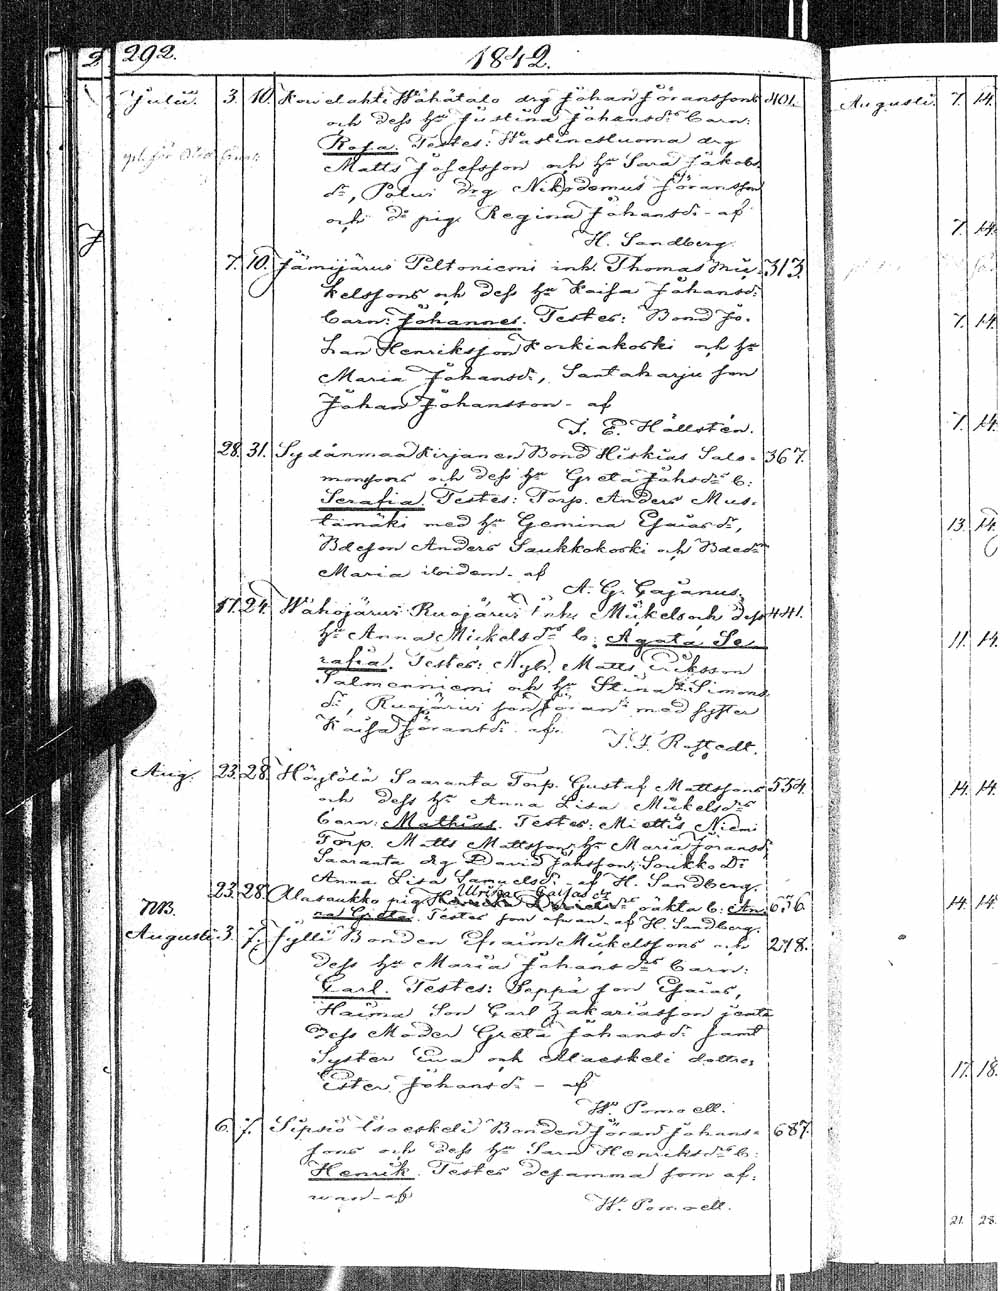 2
292.
1842.
Julii. 3. 10. Kowelahti Wähätalo drg Johan Jöranssons 401.
och dess hu Justina Johansdrs Barn:
Rosa. Testes: Hästinestuoma drg
Matts Josefsson och hu Sara Jakobs
dr, Polus drg Nikodemus Jöransson
och do pig. Regina Johansdr - af
H. Sandberg.
7. 10. Jämijärvi Peltoniemi inh. Thomas Mic- 313.
kelssons och dess hu Kaisa Johansdr
Barn: Johannes. Testes: Bond Jo-
han Henriksson Koskiakoski och hu
Maria Johansdr, Santaharju son
Johan Johansson - af
J. E. Hällstén.
28. 31. Sydänmaa Kirjanen Bond Hiskias Salo- 367.
monsons och dess hu Greta Johsdrs b:
Serafia. Testes: Torp. Anders Mus-
tamäki med hu Gemina Esaiasdr,
Bdeson Anders Saukkokoski och Bdedr
Maria ibidem - af
A. G. Cajanus.
17. 24. Wähojärvi Ruojärvi inh. Mickels och dess 441.
hu Anna Mickelsdrs b: Agata Se-
rafia. Testes: Nyb. Matts Eriksson
Salmenniemi och hu Stina Simons
dr, Ruojärvi son Jöran med syster
Kaisa Jöransdr - af.
J. F. Rostedt.
Aug. 23. 28. Höytölä Saaranta Torp. Gustaf Mattssons 534.
och dess hu Anna Lisa Mickelsdrs
Barn: Mathias. Testes: Miettis Niemi
Torp. Matts Mattsson, hu Maria Jöransdr,
Saaranta drg David Johsson, Soukko Dr
Anna Lisa Samuelsdr - af H. Sandberg.
23. 28. Alasaukko pig. Ulrika Esaiasdrs oäkta b: An- 676.
na Greta. Testes som ofvan. af H. Sandberg.
NB.
Augusti 3. 7. Jylli Bonden Efraim Mickelssons och 278.
dess hu Maria Johansdrs Barn:
Carl. Testes: Seppä son Esaias,
Haima Son Carl Zakariasson jemte
dess Moder Greta Johansdr samt
Syster Ewa och Alaeskeli dotter
Ester Johansdr - af
W. Pomoell.
6. 7. Sipsiö Isoeskeli Bonden Jöran Johans- 687.
sons och dess hu Sara Henriksdrs b:
Henrik. Testes desamma som of-
wan - af
W. Pomoell.
Augusti. 7. 14.
7. 14.
7. 14.
7. 14.
13. 14.
11. 14.
14. 14.
14. 14.
17. 18.
21. 28.